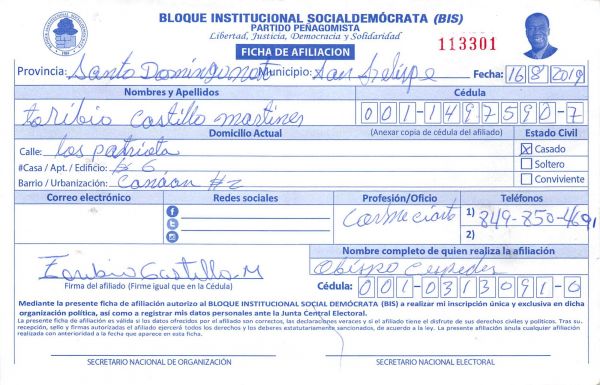 BLOQUE INSTITUCIONAL SOCIALDEMÓCRATA (BIS)
PARTIDO PEÑAGOMISTA
Libertad, Justicia, Democracia y Solidaridad
FICHA DE AFILIACION
113301
Provincia: Santo Domingo Municipio: San Felipe Fecha: 16/8/2019
Nombres y Apellidos Cédula:
toribio Castillo martines 001-1497590-7
Domicilio Actual (Anexar copia de cédula del afiliado) Estado Civil
Calle: los patriota Casado
#Casa / Apt. / Edificio: # 6 Soltero
Barrio / Urbanización: Canáan #2 Conviviente
Correo electrónico Redes sociales Profesión/Oficio Teléfonos
Comeciante 1) 849-850-4691
2)
Nombre completo de quien realiza la afiliación
Toribio Castillo M Obispo Cespedes
Firma del afiliado (Firme igual que en la Cédula) Cédula: 001-0313091-0
Mediante la presente ficha de afiliación autorizo al BLOQUE INSTITUCIONAL SOCIAL DEMÓCRATA (BIS) a realizar mi inscripción única y exclusiva en dicha
organización política, así como a registrar mis datos personales ante la Junta Central Electoral.
La presente ficha de afiliación es válida si los datos ofrecidos por el afiliado son correctos, las declaraciones veraces y si el afiliado tiene el disfrute de sus derechos civiles y políticos. Tras su
recepción, sello y firmas autorizadas el afiliado ejercerá todos los derechos y los deberes estatutariamente sancionados, de acuerdo a la ley. La presente afiliación ánula cualquier afiliación
realizada con anterioridad a la fecha que aparece en esta ficha.
SECRETARIO NACIONAL DE ORGANIZACIÓN SECRETARIO NACIONAL ELECTORAL